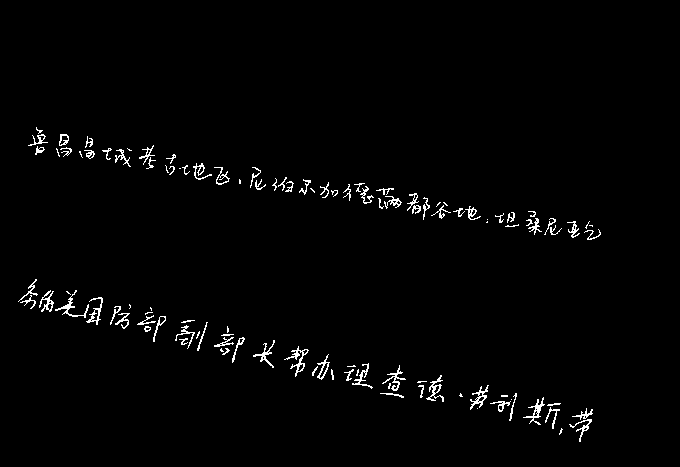 鲁昌昌城考古地区、尼泊尔加德满都谷地、坦桑尼亚乞
务的美国防部副部长帮办理查德·劳利斯,带